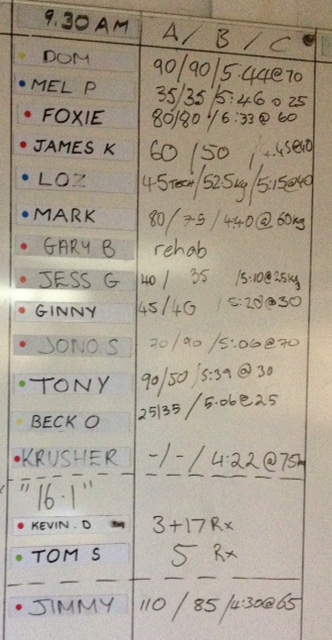 9.30 AM A / B / C
DOM 90/90/5:44@70
MEL P 35/35/5:46@25
FOXIE 80/80/6:33@60
JAMES K 60/50/
LOZ 45TECH/52.5kg/5:15@40
MARK 80/75/4:40@60kg
GARY B rehab
JESS G 40/35/5:10@25kg
GINNY 45/40/5:28@30
JONO S 70/90/5:06@70
TONY 90/50/5:39@30
BECK O 25/35/5:06@25
KRUSHER -/-/4:22@75kg
"16.1"
KEVIN.D 3+17 Rx
TOM S 5 Rx
JIMMY 110/85/4:30@65